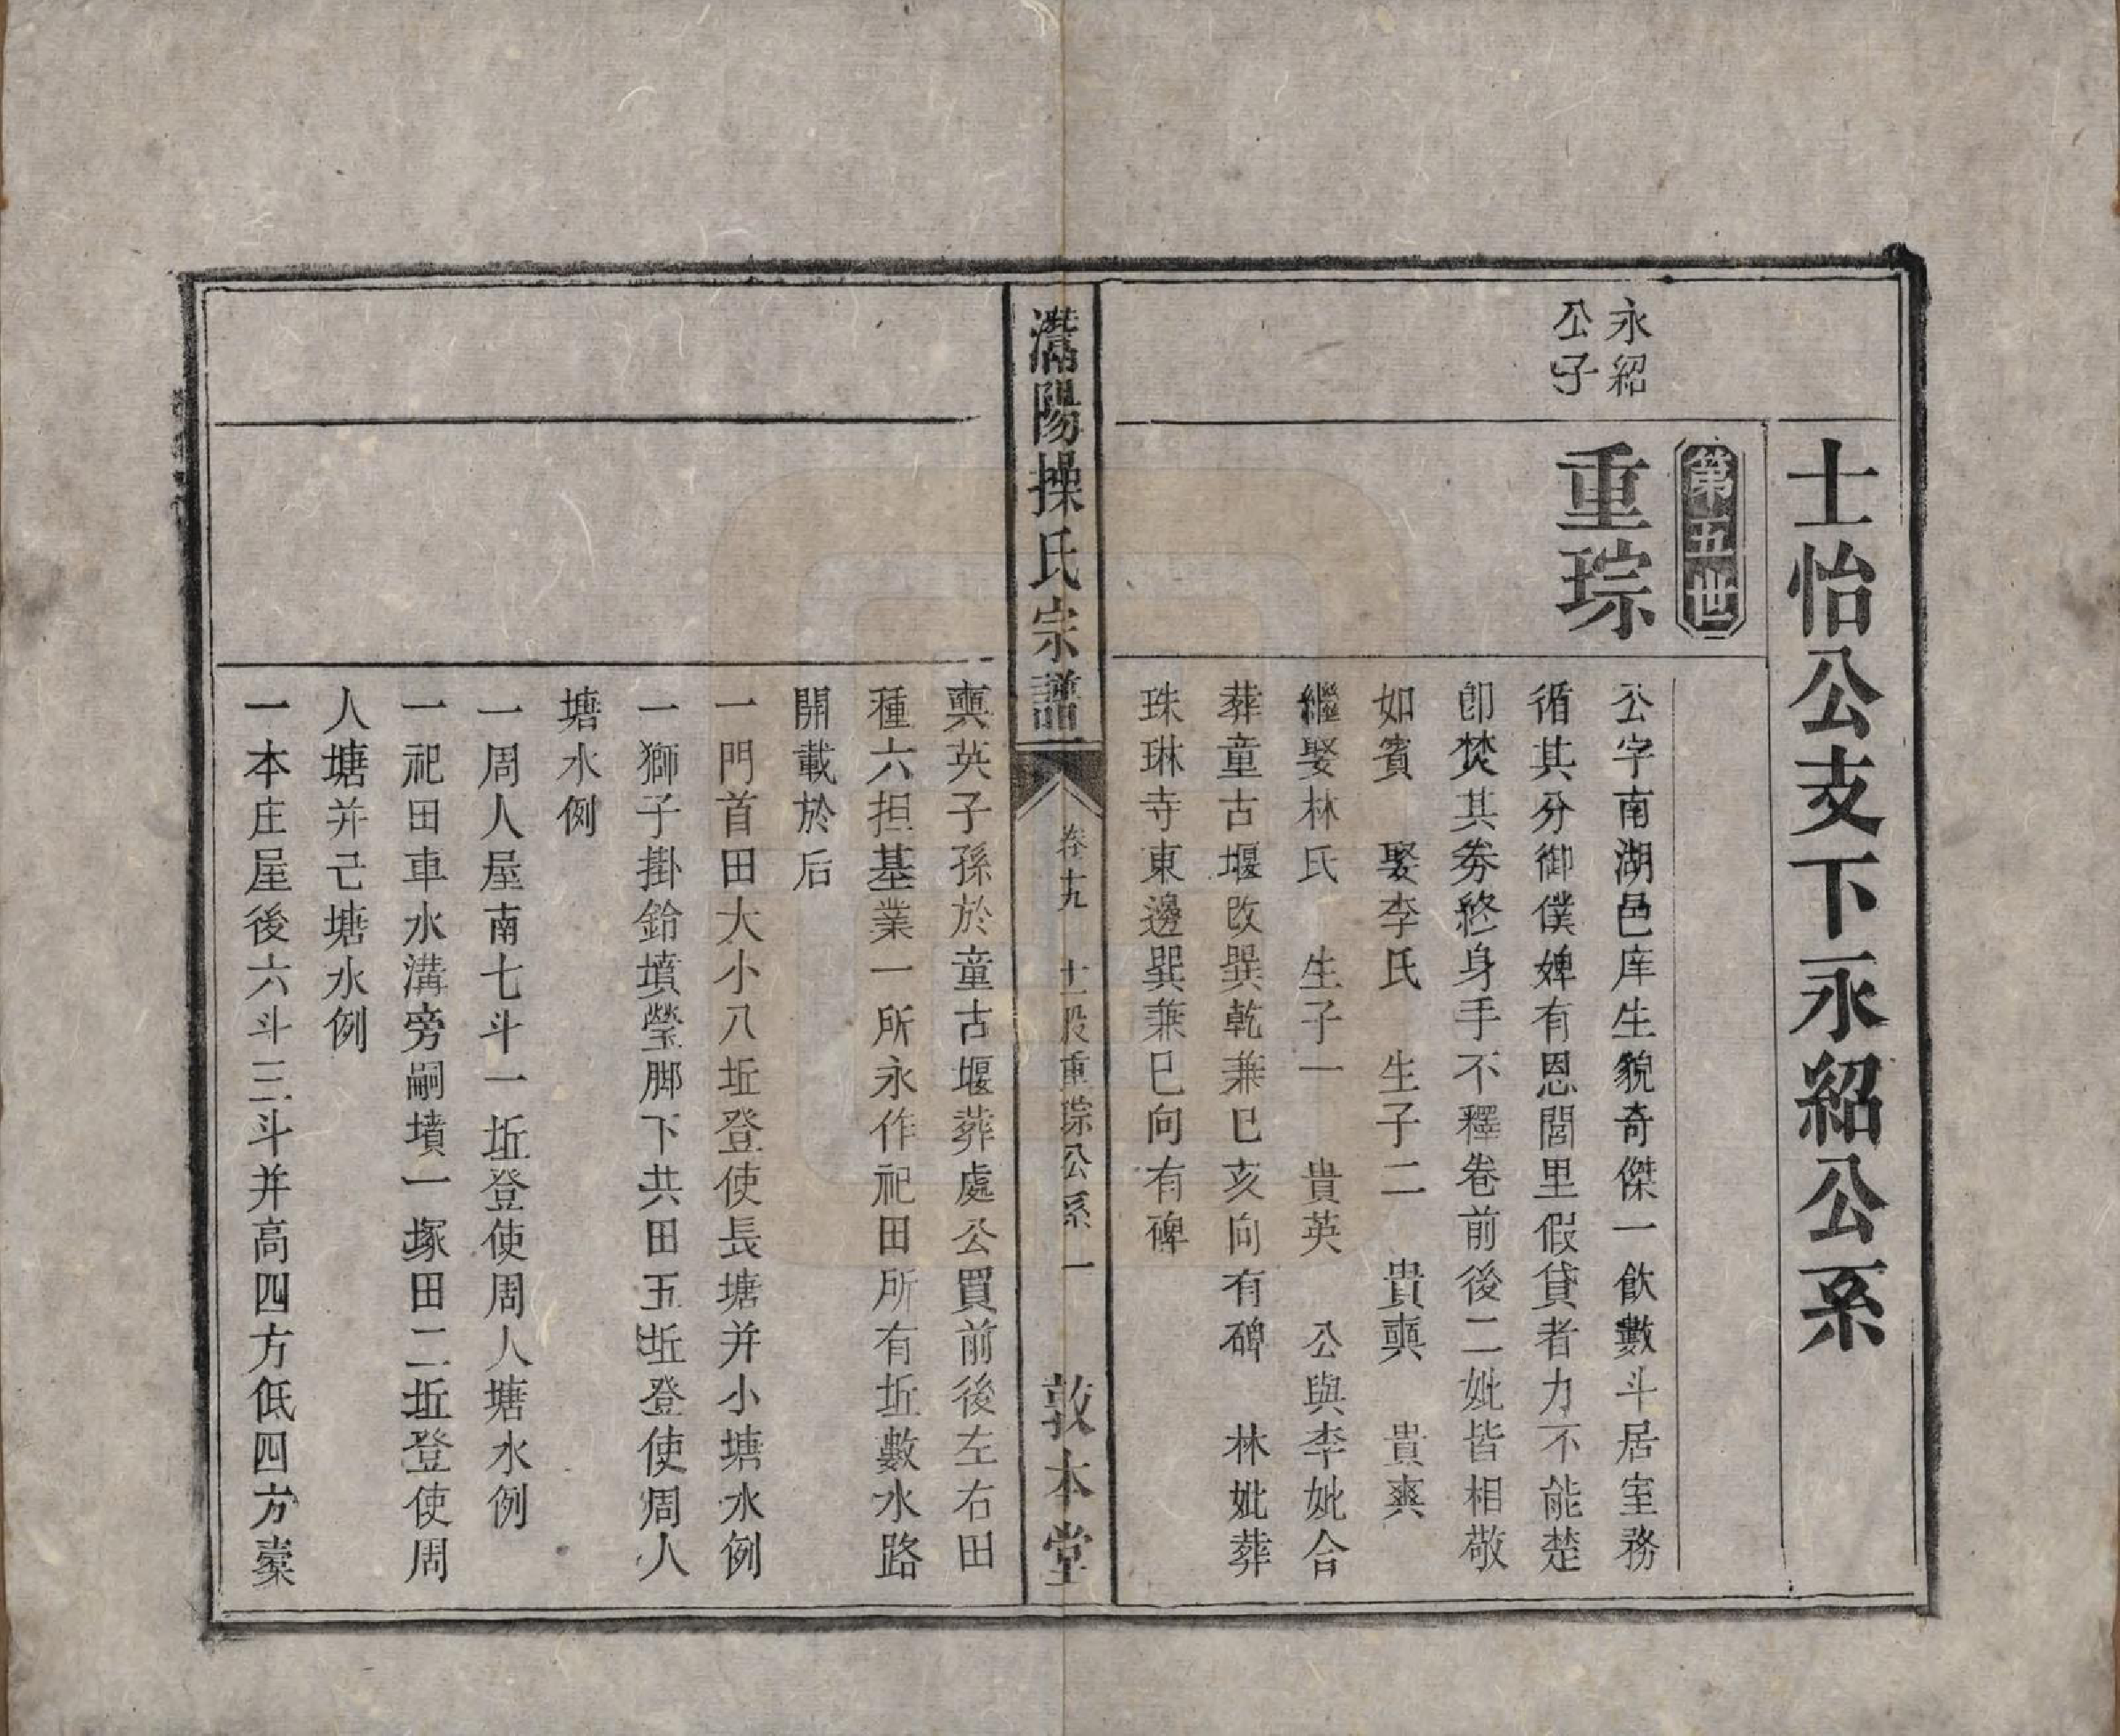 士怡公支下永紹公系
第五世
永紹
公子
重琮
公字南湖邑庠生貌奇傑一飲數斗居室務
循其分御僕婢有恩閭里假貸者力不能楚
卽焚其劵終身手不釋卷前後二妣皆相敬
如賓　娶李氏　生子二　貴奭　貴爽
繼娶林氏　生子一　貴英　公與李妣合
葬童古堰改巽乾兼巳亥向有碑　林妣葬
珠琳寺東邊巽兼巳向有碑
鄱陽操氏宗譜
卷十九　士股重琮公系　一
敦本堂
奭英子孫於童古堰葬處公買前後左右田
種六担基業一所永作祀田所有坵數水路
開載於后
一門首田大小八坵登使長塘并小塘水例
一獅子掛鈴墳塋脚下共田五坵登使周人
塘水例
一周人屋南七斗一坵登使周人塘水例
一祀田車水溝旁嗣墳一塚田二坵登使周
人塘并己塘水例
一本庄屋後六斗三斗并高四方低四方棄